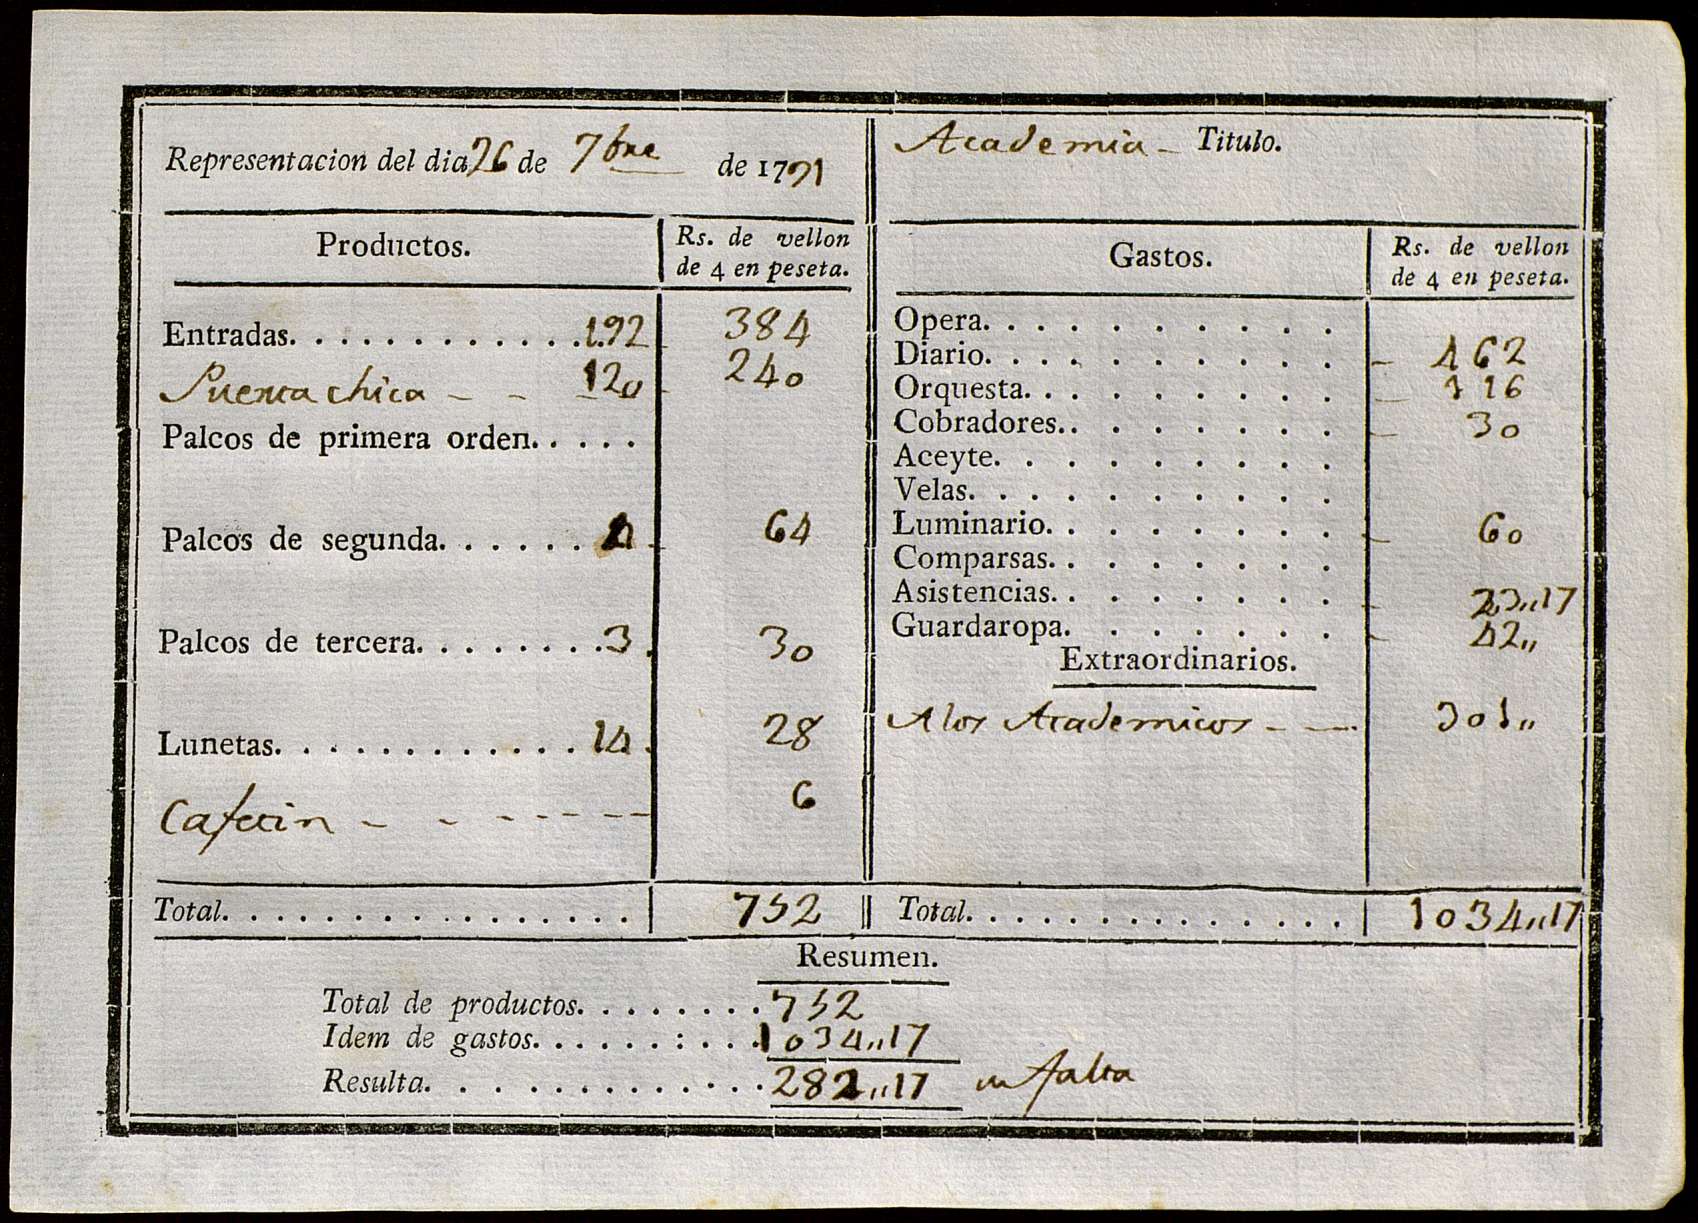 Representacion del dia 26 de 7bre de 1791
Academia - Titulo.
Productos.
Rs. de vellon
de 4 en peseta.
Entradas. 192 384
Puerta chica - - 120 240
Palcos de primera orden.
Palcos de segunda. 4 64
Palcos de tercera. 3 30
Lunetas. 14 28
Cafetin - 6
Total. 752
Gastos.
Rs. de vellon
de 4 en peseta.
Opera.
Diario. 462
Orquesta. 116
Cobradores. 30
Aceyte.
Velas.
Luminario. 60
Comparsas.
Asistencias. 23,,17
Guardaropa. 42,,
Extraordinarios.
A los Academicos - 301,,
Total. 1034,,17
Resumen.
Total de productos. 752
Idem de gastos. 1034,,17
Resulta. 282,,17 en falta